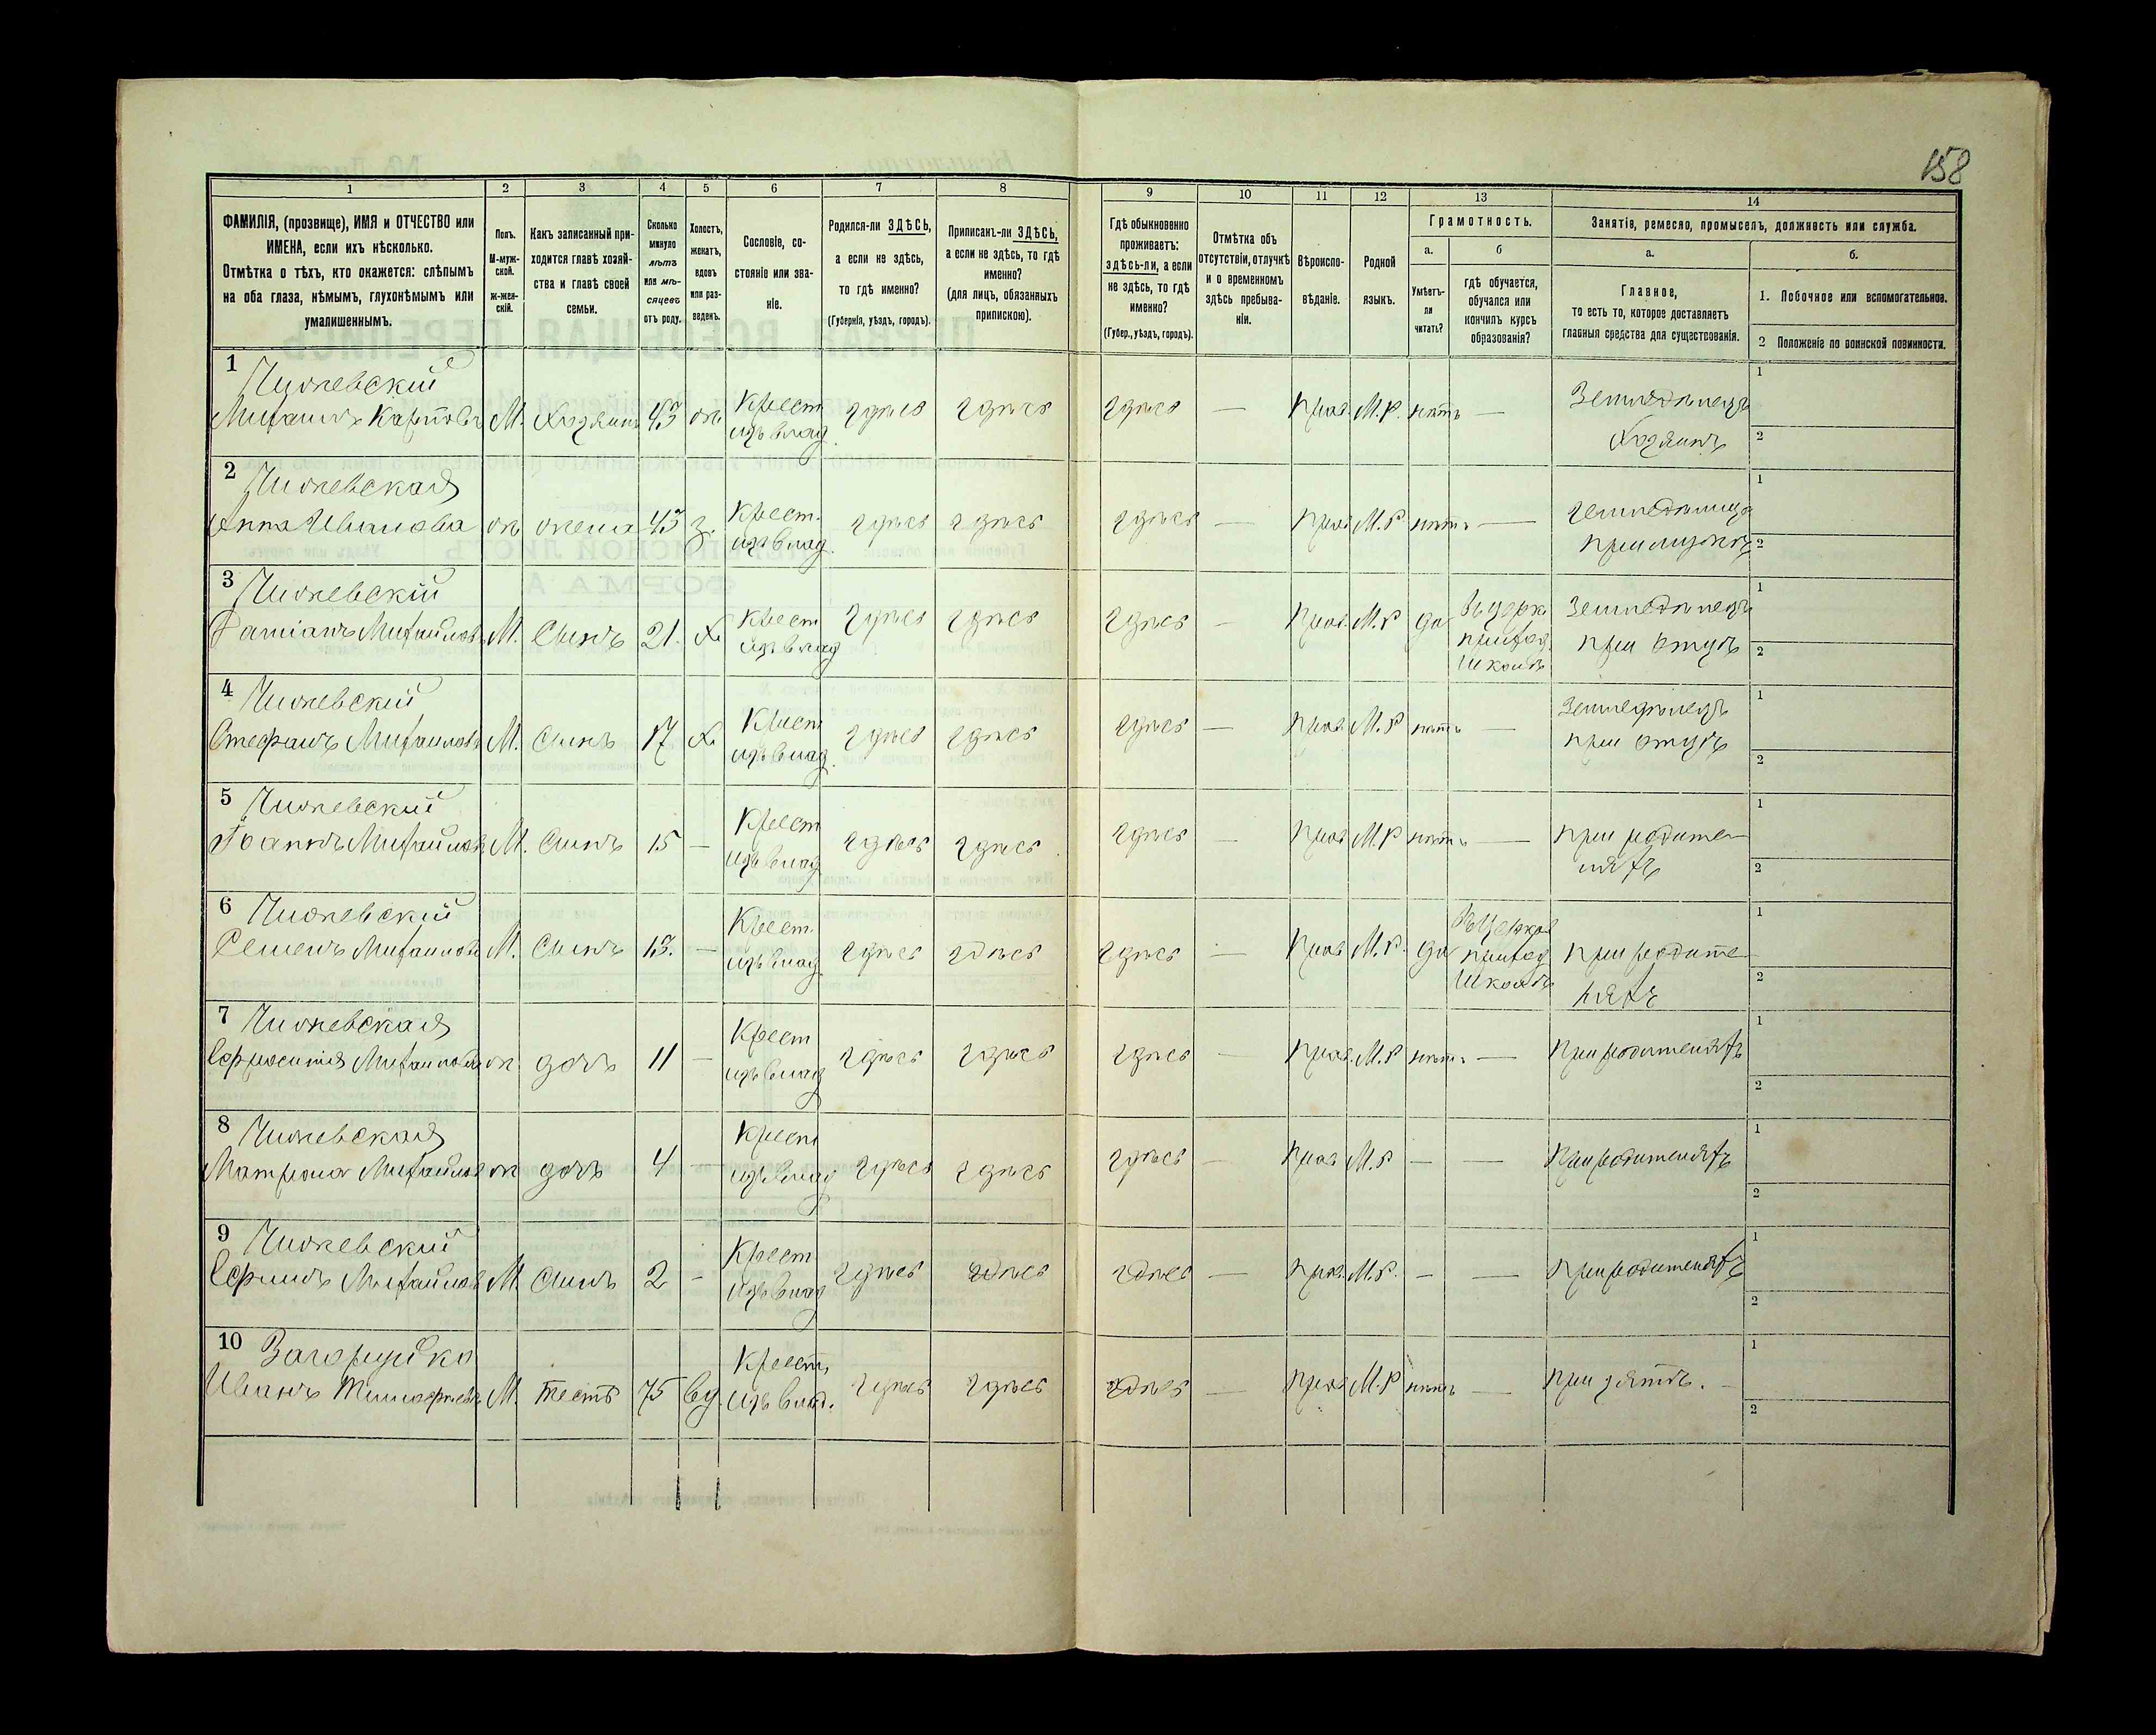 158
1 2 3 4 5 6 7 8 9 10 11 12 13 14
ФАМИЛІЯ, (прозвище), ИМЯ и ОТЧЕСТВО или
ИМЕНА, если ихъ нѣсколько.
Отмѣтка о тѣхъ, кто окажется: слѣпымъ
на оба глаза, нѣмымъ, глухонѣмымъ или
умалишеннымъ.
Полъ.
М-муж-
ской.
ж-жен-
скій.
Какъ записанный при-
ходится главѣ хозяй-
ства и главѣ своей
семьи.
Сколько
минуло
лѣтъ
или мѣ-
сяцевъ
отъ роду.
Холостъ,
женатъ,
вдовъ
или раз-
веденъ.
Сословіе, со-
стояніе или зва-
ніе.
Родился-ли ЗДѢСЬ,
а если не здѣсь,
то гдѣ именно?
(Губернія, уѣздъ, городъ).
Приписанъ-ли ЗДѢСЬ,
а если не здѣсь, то гдѣ
именно?
(для лицъ, обязанныхъ
припискою).
Гдѣ обыкновенно
проживаетъ:
здѣсь-ли, а если
не здѣсь, то гдѣ
именно?
(Губер., уѣздъ, городъ).
Отмѣтка объ
отсутствіи, отлучкѣ
и о временномъ
здѣсь пребыва-
ніи.
Вѣроиспо-
вѣданіе.
Родной
языкъ.
Грамотность.
а.
Умѣетъ-
ли
читать?
б
гдѣ обучается,
обучался или
кончилъ курсъ
образованія?
Занятіе, ремесло, промыселъ, должность или служба.
а.
Главное,
то есть то, которое доставляетъ
главныя средства для существованія.
б.
1. Побочное или вспомогательное.
2 Положеніе по воинской повинности.
1 Чижевскій
Михаилъ Карповъ М. Хозяинъ 43 ж. Крест. изъ влад. здѣсь здѣсь здѣсь — Прав. М.Р. нѣтъ — Земледѣлецъ
Хозяинъ
1
2
2 Чижевская
Анна Иванова ж жена 43 з. Крест. изъ влад. здѣсь здѣсь здѣсь — Прав М.Р нѣтъ — земледѣлица
при мужѣ
1
2
3 Чижевскій
Даміанъ Михайловъ М. Сынъ 21. х. Крест изъ влад здѣсь здѣсь здѣсь — Прав. М.Р да Въ церк. приход. школѣ Земледѣлецъ
при отцѣ
1
2
4 Чижевскій
Стефанъ Михаиловъ М. Сынъ 17 х. Крест изъ влад. здѣсь здѣсь здѣсь — Прав. М.Р нѣтъ — Земледѣлецъ
при отцѣ
1
2
5 Чижевскій
Іоаннъ Михайловъ М. Сынъ 15 — Крест изъ влад здѣсь здѣсь здѣсь — Прав М.Р нѣтъ — при родите-
ляхъ
1
2
6 Чижевскій
Михаиловъ М. Сынъ 13. — Крест. изъ влад. здѣсь здѣсь здѣсь — Прав М.Р. да Въ церков приход школѣ при родите-
ляхъ
1
2
7 Чижевская
Ефросинія Михаилова ж. дочь 11 — Крест изъ влад здѣсь здѣсь здѣсь — Прав. М.Р нѣтъ — При родителяхъ
1
2
8 Чижевская
Матрона Михайлов ж дочь 4 — Крест изъ влад здѣсь здѣсь здѣсь — Прав М.Р — — При родителяхъ
1
2
9 Чижевскій
Ефимъ Михайловъ М. Сынъ 2 — Крест изъ влад здѣсь здѣсь здѣсь — Прав. М.Р. — — При родителяхъ
1
2
10 Загоруйко
Иванъ Тимофѣевъ М. тесть 75 вд. Крест. изъ влад. здѣсь здѣсь здѣсь — Прав М.Р нѣтъ — При зятѣ. —
1
2